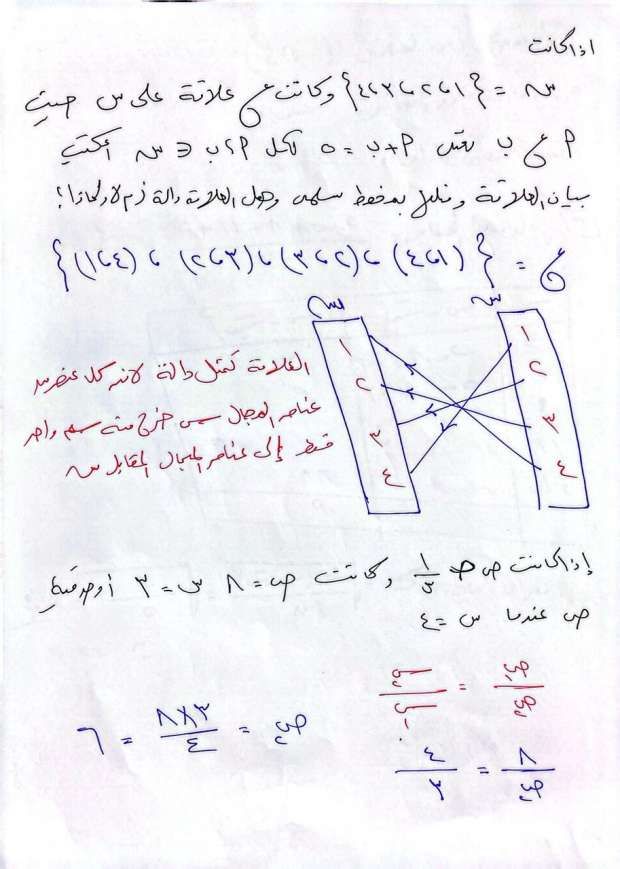 اذا كانت
س = {١ ، ٢ ، ٣ ، ٤} وكانت ع علاقة على س حيث
م ع ب تعنى م + ب = ٥ لكل م ، ب ∈ س أكتب
بيان العلاقة ومثلها بمخطط سهمى وهل العلاقة دالة أم لا ولماذا؟
ع = {(١ ، ٤) ، (٢ ، ٣) ، (٣ ، ٢) ، (٤ ، ١)}
س س
١ ١
٢ ٢
٣ ٣
٤ ٤
العلاقة تمثل دالة لانه كل عنصر من
عناصر المجال س خرج منه سهم واحد
فقط إلى عناصر المجال المقابل س
إذا كانت ص ∝ ١/س وكانت ص = ٨ س = ٣ أوجد قيمة
ص عندما س = ٤
ص/ص = س/س
٨/ص = ٤/٣
ص = ٣×٨/٤ = ٦